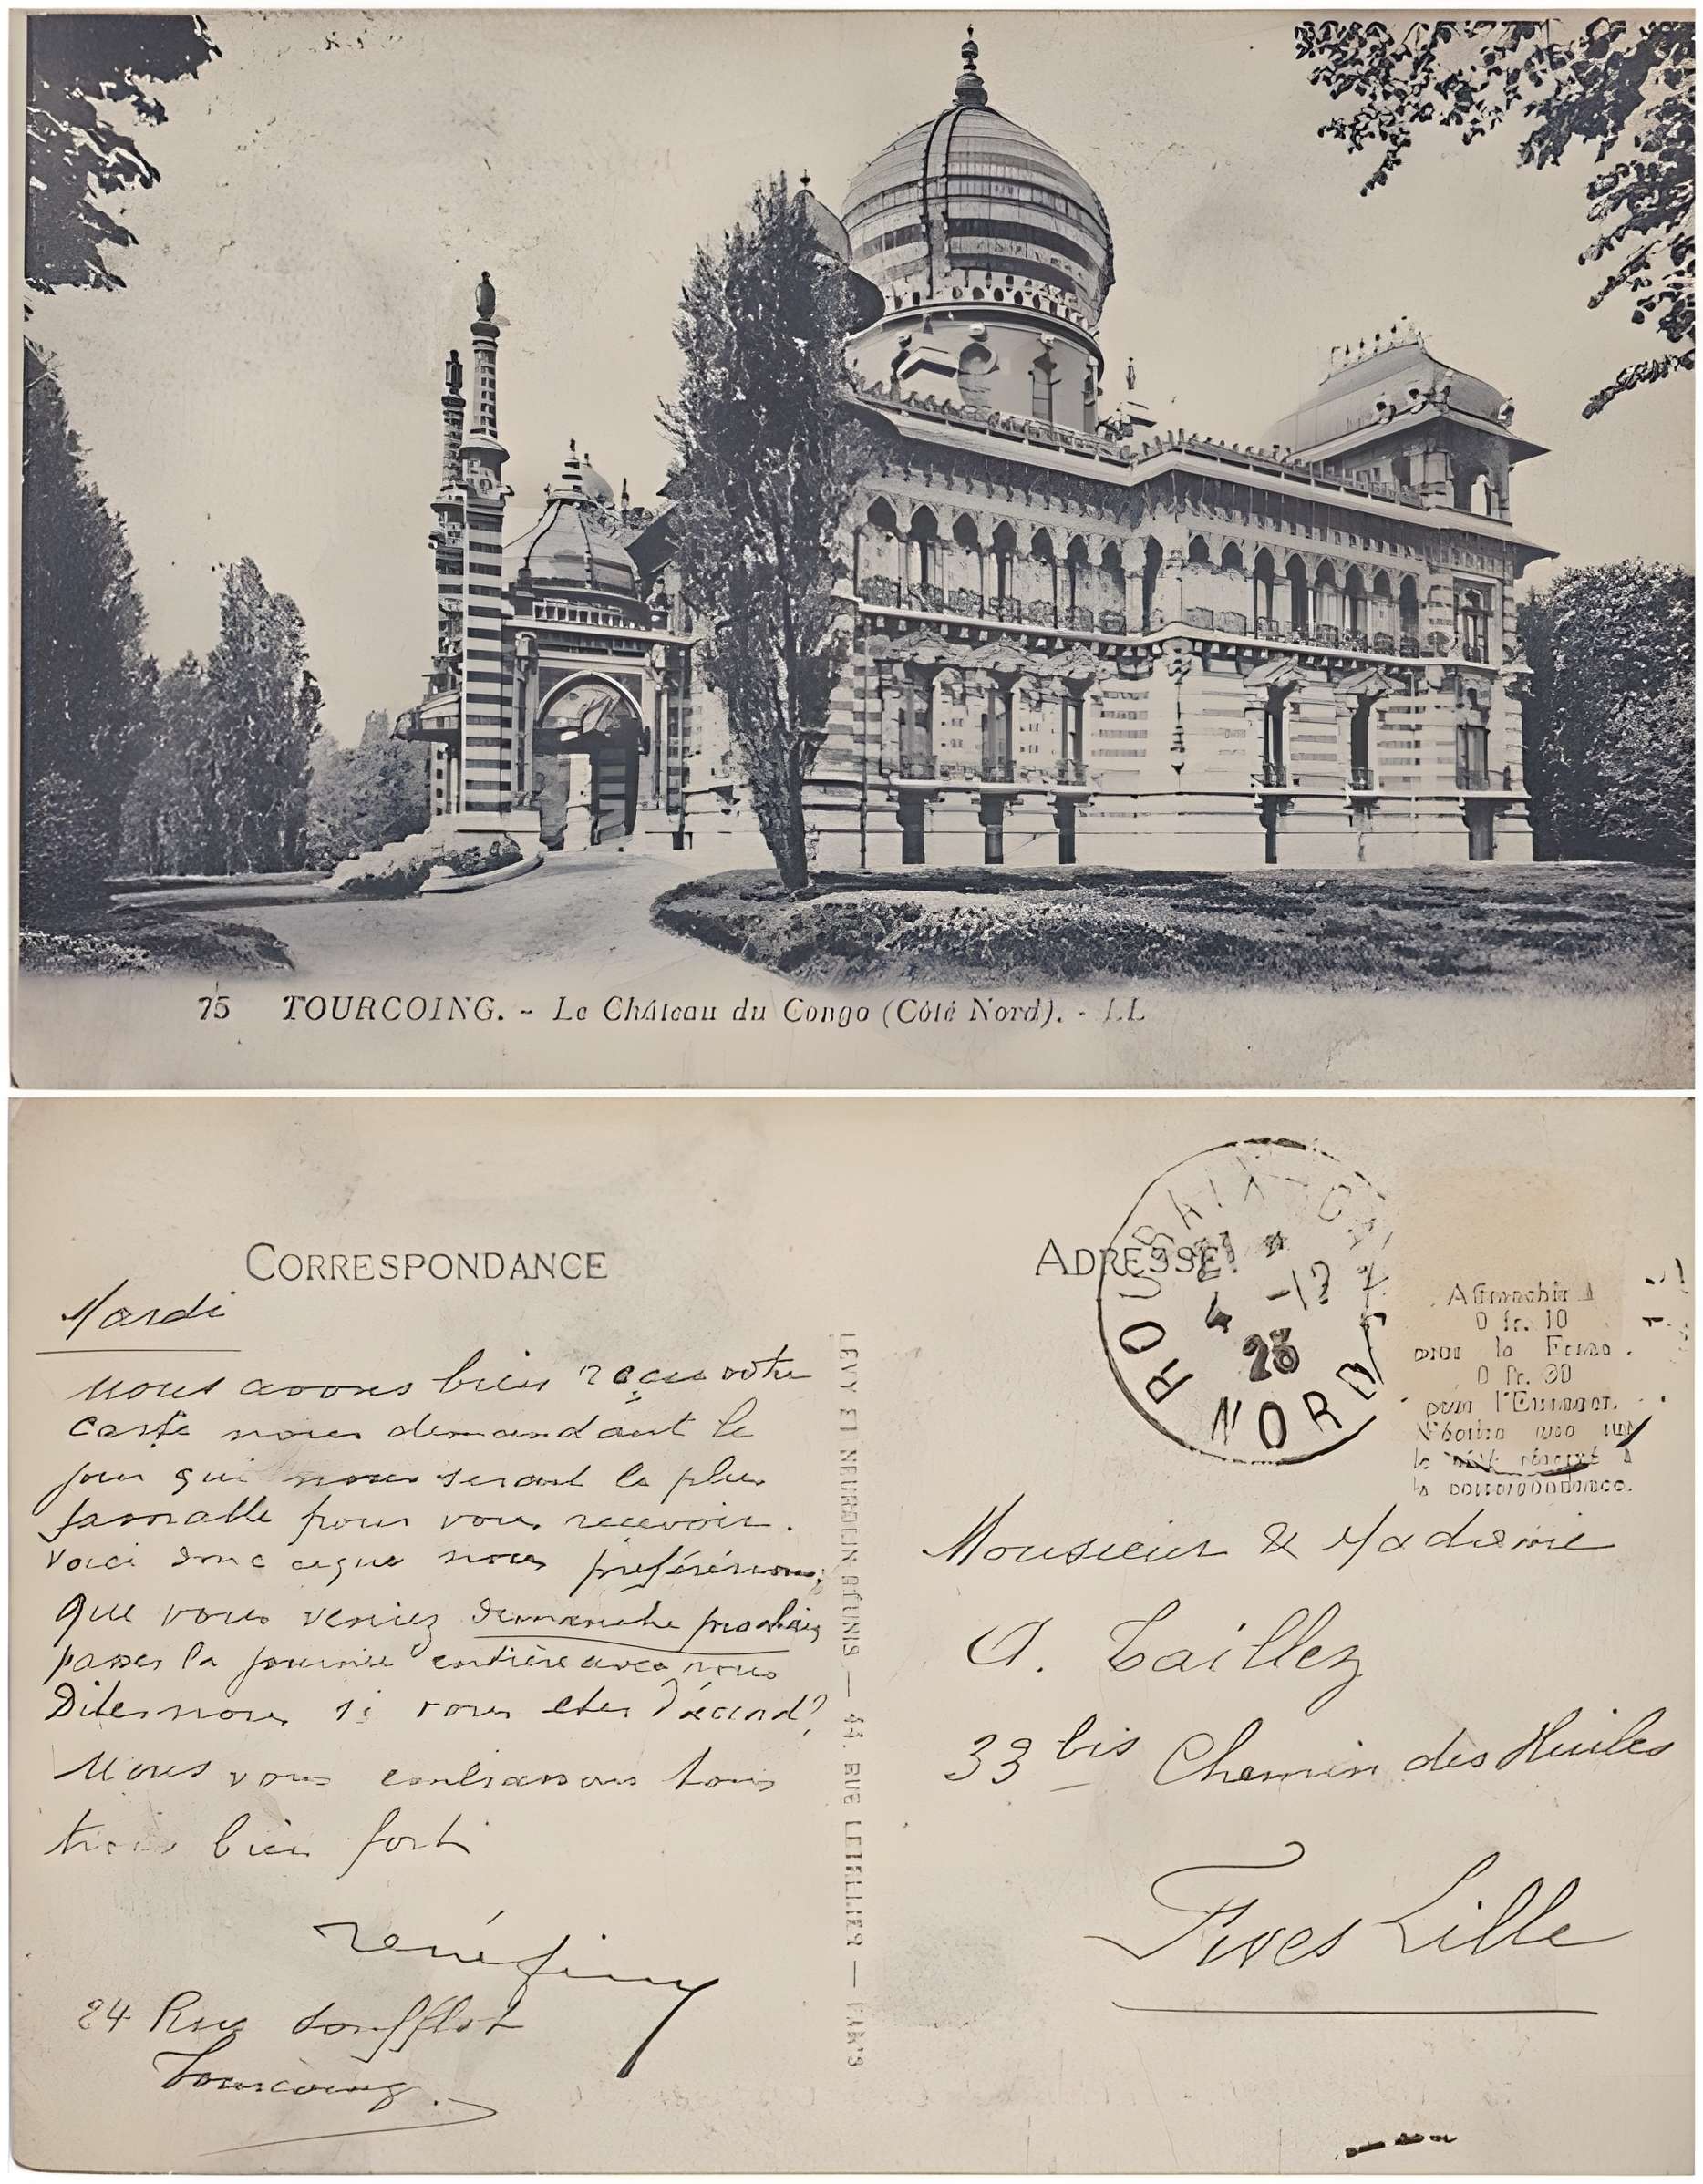 75 TOURCOING. - Le Château du Congo (Côté Nord). - LL
CORRESPONDANCE
Mardi
nous avons bien recu votre
carte nous demandant le
jour qui nous serait le plus
favorable pour vous recevoir.
Voici donc ceque nous préférerions,
que vous veniez dimanche prochain
passer la journée entière avec nous
Dites nous si vous etes d'accord?
Nous vous embrassons tous
trois bien fort
24 Rue Soufflot
Tourcoing.
LEVY ET NEURDEIN RÉUNIS — 44. RUE LETELLIER — PARIS
ADRESSE
ROUBAIX
4 -12
23
NORD
Affranchir à
0 fr. 10
pour la France.
0 fr. 30
pour l'Etranger.
N'écrire que sur
le côté réservé à
la correspondance.
Monsieur & Madame
A. Taillez
33 bis Chemin des Huiles
Fives Lille